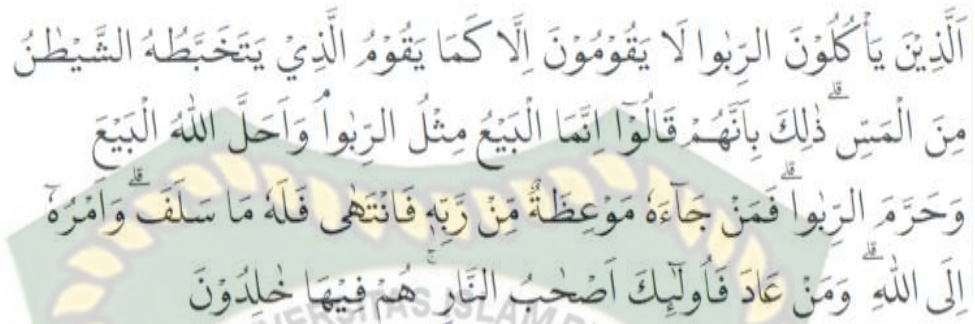 اَلَّذِيْنَ يَأْكُلُوْنَ الرِّبٰوا لَا يَقُوْمُوْنَ اِلَّا كَمَا يَقُوْمُ الَّذِيْ يَتَخَبَّطُهُ الشَّيْطٰنُ
مِنَ الْمَسِّۗ ذٰلِكَ بِاَنَّهُمْ قَالُوْٓا اِنَّمَا الْبَيْعُ مِثْلُ الرِّبٰواۘ وَاَحَلَّ اللّٰهُ الْبَيْعَ
وَحَرَّمَ الرِّبٰواۗ فَمَنْ جَاۤءَهٗ مَوْعِظَةٌ مِّنْ رَّبِّهٖ فَانْتَهٰى فَلَهٗ مَا سَلَفَۗ وَاَمْرُهٗٓ
اِلَى اللّٰهِۗ وَمَنْ عَادَ فَاُولٰۤىِٕكَ اَصْحٰبُ النَّارِۚ هُمْ فِيْهَا خٰلِدُوْنَ